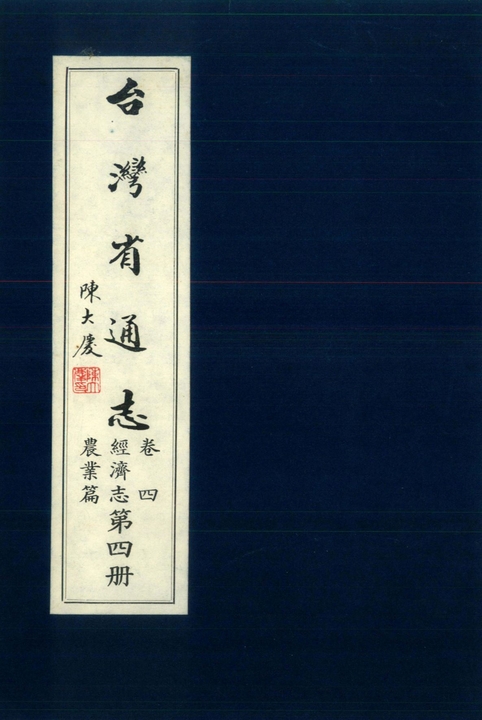 台灣省通志
卷四
經濟志第四册
農業篇
陳大慶